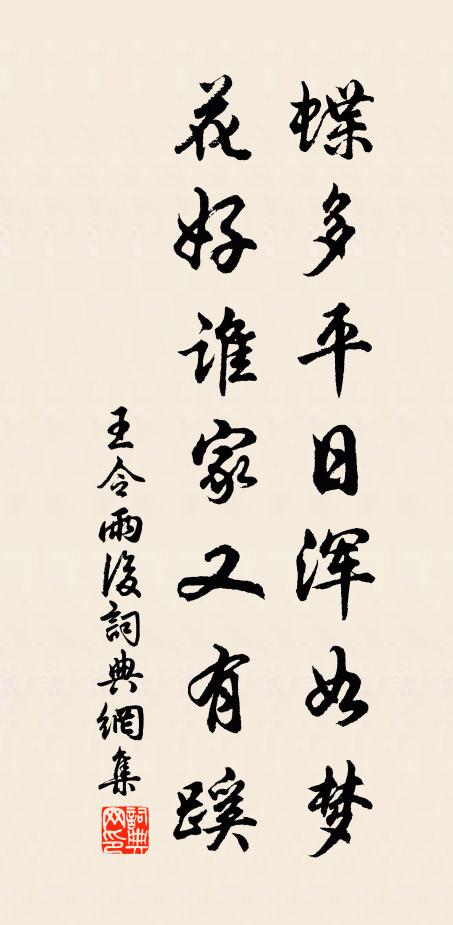 蝶多平日浑如梦
花好谁家又有蹊
王令雨後詞典網集
詞典网印